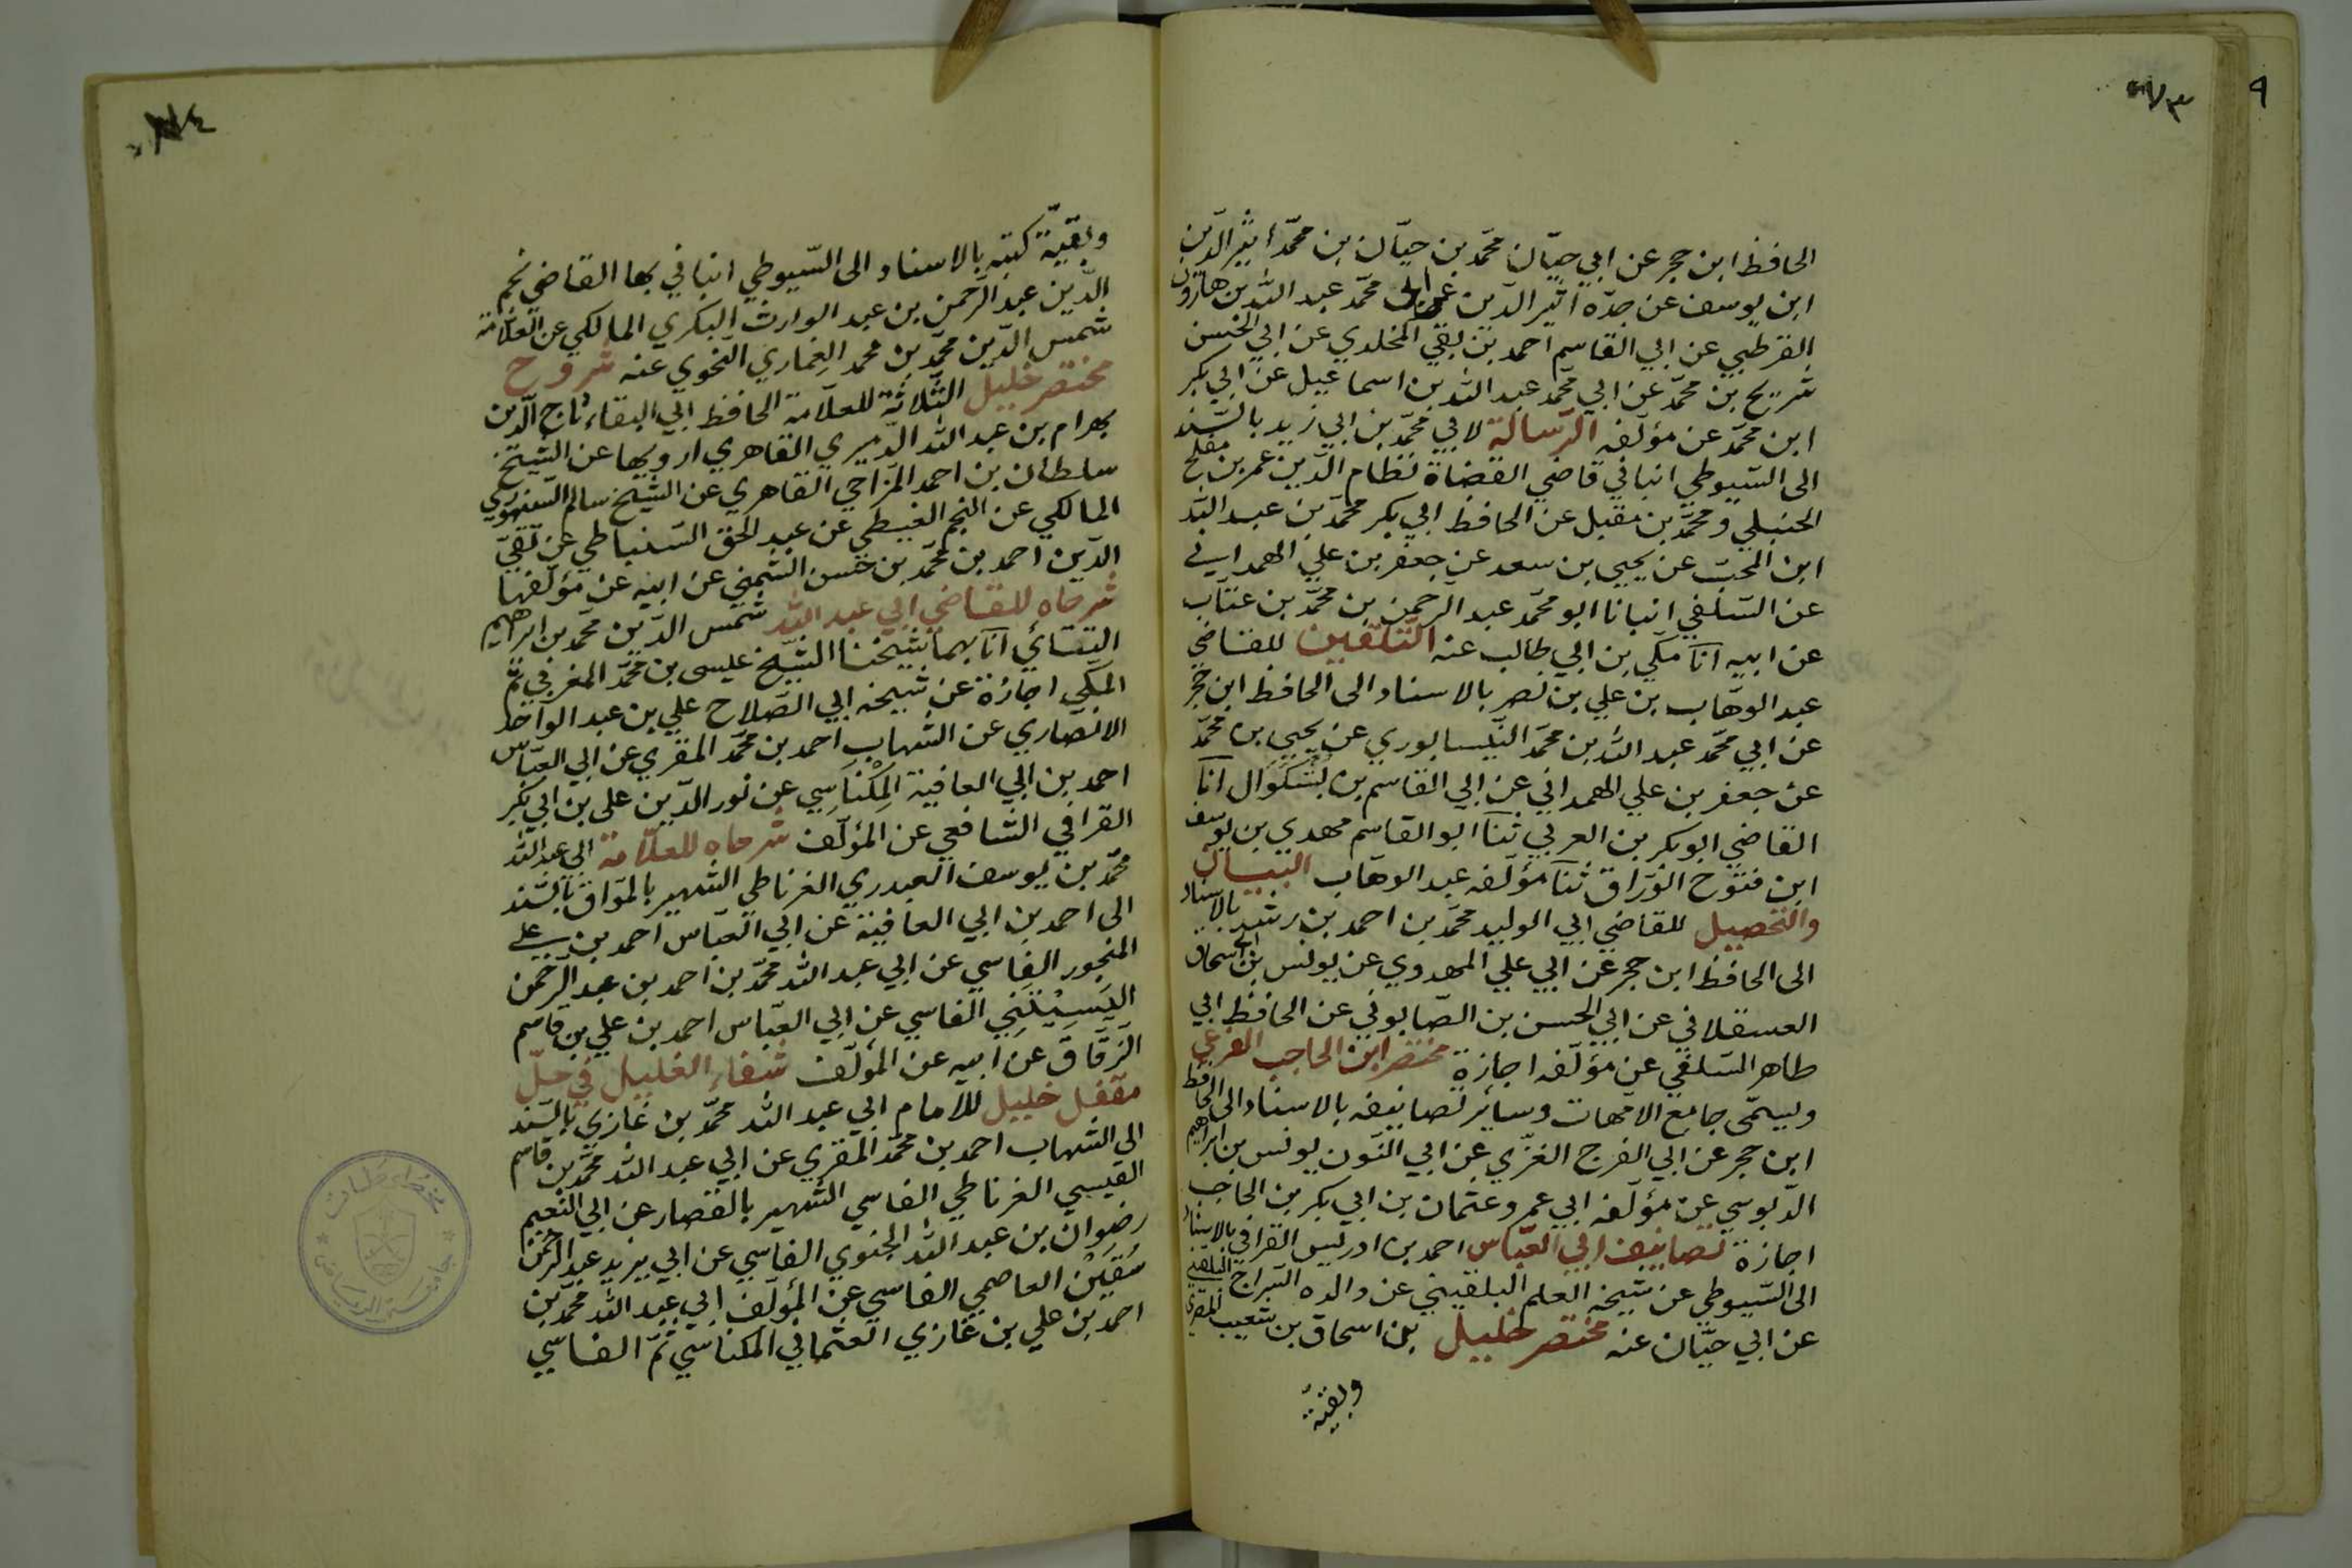 ٩
الحافظ ابن حجر عن ابي حيّان محمّد بن حيّان بن محمّد اثير الدّين
ابن يوسف عن جدّه اثير الدّين عن ابي محمّد عبد الله بن هارون
القرطبي عن ابي القاسم احمد بن بقي المخلدي عن ابي الحسن
شريح بن محمّد عن ابي محمّد عبد الله بن اسماعيل عن ابي بكر
ابن محمّد عن مؤلفه الرّسالة لابي محمّد بن ابي زيد بالسّند
الى السّيوطي انباني قاضي القضاة نظام الدّين عمر بن مفلح
الحنبلي ومحمّد بن مقبل عن الحافظ ابي بكر محمّد بن عبد الله
ابن المحبّ عن يحيى بن سعد عن جعفر بن علي الهمداني
عن السّلفي انبانا ابو محمّد عبد الرّحمن بن محمّد بن عتّاب
عن ابيه انا مكّي بن ابي طالب عنه التّلقين للقاضي
عبد الوهّاب بن علي بن نصر بالاسناد الى الحافظ ابن حجر
عن ابي محمّد عبد الله بن محمّد النّيسابوري عن يحيى بن محمّد
عن جعفر بن علي الهمداني عن ابي القاسم بن بُشْكُوَال انا
القاضي ابو بكر بن العربي ثنا ابو القاسم مهدي بن يوسف
ابن فتوح الورّاق ثنا مؤلّفه عبد الوهّاب البيان
والتحصيل للقاضي ابي الوليد محمّد بن احمد بن رشد بالاسناد
الى الحافظ ابن حجر عن ابي علي المهدوي عن يونس بن ابي اسحاق
العسقلاني عن ابي الحسن بن الصّابوني عن الحافظ ابي
طاهر السّلفي عن مؤلّفه اجازة مختصر ابن الحاجب الفرعي
ويسمّى جامع الامّهات وسائر تصانيفه بالاسناد الى الحافظ
ابن حجر عن ابي الفرج الغزّي عن ابي النّون يونس بن ابراهيم
الدّبوسي عن مؤلّفه ابي عمرو عثمان بن ابي بكر بن الحاجب
اجازة تصانيف ابي العبّاس احمد بن ادريس القرافي بالاسناد
الى السّيوطي عن شيخه العلم البلقيني عن والده السّراج البلقيني
عن ابي حيّان عنه مختصر خليل بن اسحاق بن شعيب المصري
وبقيّة
وبقيّة كتبه بالاسناد الى السّيوطي انباني بها القاضي نجم
الدّين عبد الرّحمن بن عبد الوارث البكري المالكي عن العلّامة
شمس الدّين محمّد بن محمد الغماري النّحوي عنه شروح
مختصر خليل الثّلاثة للعلّامة الحافظ ابي البقاء تاج الدّين
بهرام بن عبد الله الدّميري القاهري ارويها عن الشّيخ
سلطان بن احمد المزّاحي القاهري عن الشّيخ سالم السّنهوري
المالكي عن النّجم الغيطي عن عبد الحق السّنباطي عن تقيّ
الدّين احمد بن محمّد بن حسن الشّمنّي عن ابيه عن مؤلّفها
شرحاه للقاضي ابي عبد الله شمس الدّين محمّد بن ابراهيم
التتائي انا بهما شيخنا الشّيخ عيسى بن محمّد المغربي ثمّ
المكّي اجازة عن شيخه ابي الصّلاح علي بن عبد الواحد
الانصاري عن الشّهاب احمد بن محمّد المقري عن ابي العبّاس
احمد بن ابي العافية المِكْنَاسِي عن نور الدّين علي بن ابي بكر
القرافي الشّافعي عن المؤلّف شرحاه للعلّامة ابي عبد الله
محمّد بن يوسف العبدري الغرناطي الشّهير بالموّاق بالسّند
الى احمد بن ابي العافية عن ابي العبّاس احمد بن علي
المنجور الفاسي عن ابي عبد الله محمّد بن احمد بن عبد الرّحمن
اليَسِيْتَنِي الفاسي عن ابي العبّاس احمد بن علي بن قاسم
الزّقّاق عن ابيه عن المؤلّف شفاء الغليل في حلّ
مقفل خليل للامام ابي عبد الله محمّد بن غازي بالسّند
الى الشّهاب احمد بن محمّد المقري عن ابي عبد الله محمّد بن قاسم
القيسي الغرناطي الفاسي الشّهير بالقصار عن ابي النّعيم
رضوان بن عبد الله الجنوي الفاسي عن ابي يزيد عبد الرحمن
سُقَيْن العاصمي الفاسي عن المؤلّف ابي عبد الله محمّد بن
احمد بن علي بن غازي العثماني المكناسي ثمّ الفاسي
مخطوطات
جامعة الرياض